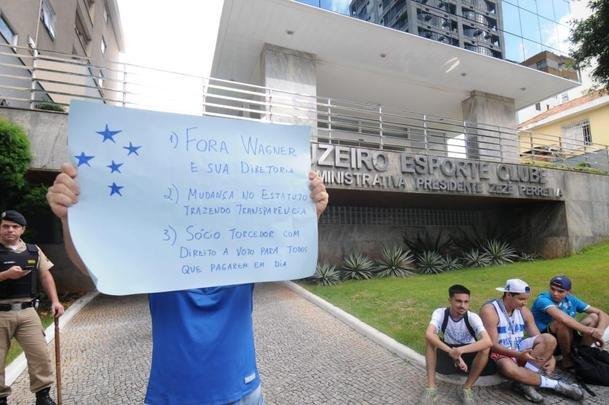 1) FORA WAGNER
E SUA DIRETORIA
2) MUDANÇA NO ESTATUTO
TRAZENDO TRANSPARÊNCIA
3) SÓCIO TORCEDOR COM
DIREITO A VOTO PARA TODOS
QUE PAGAREM EM DIA
UZEIRO ESPORTE CLUBE
MINISTRATIVA PRESIDENTE ZEZÉ PERRE